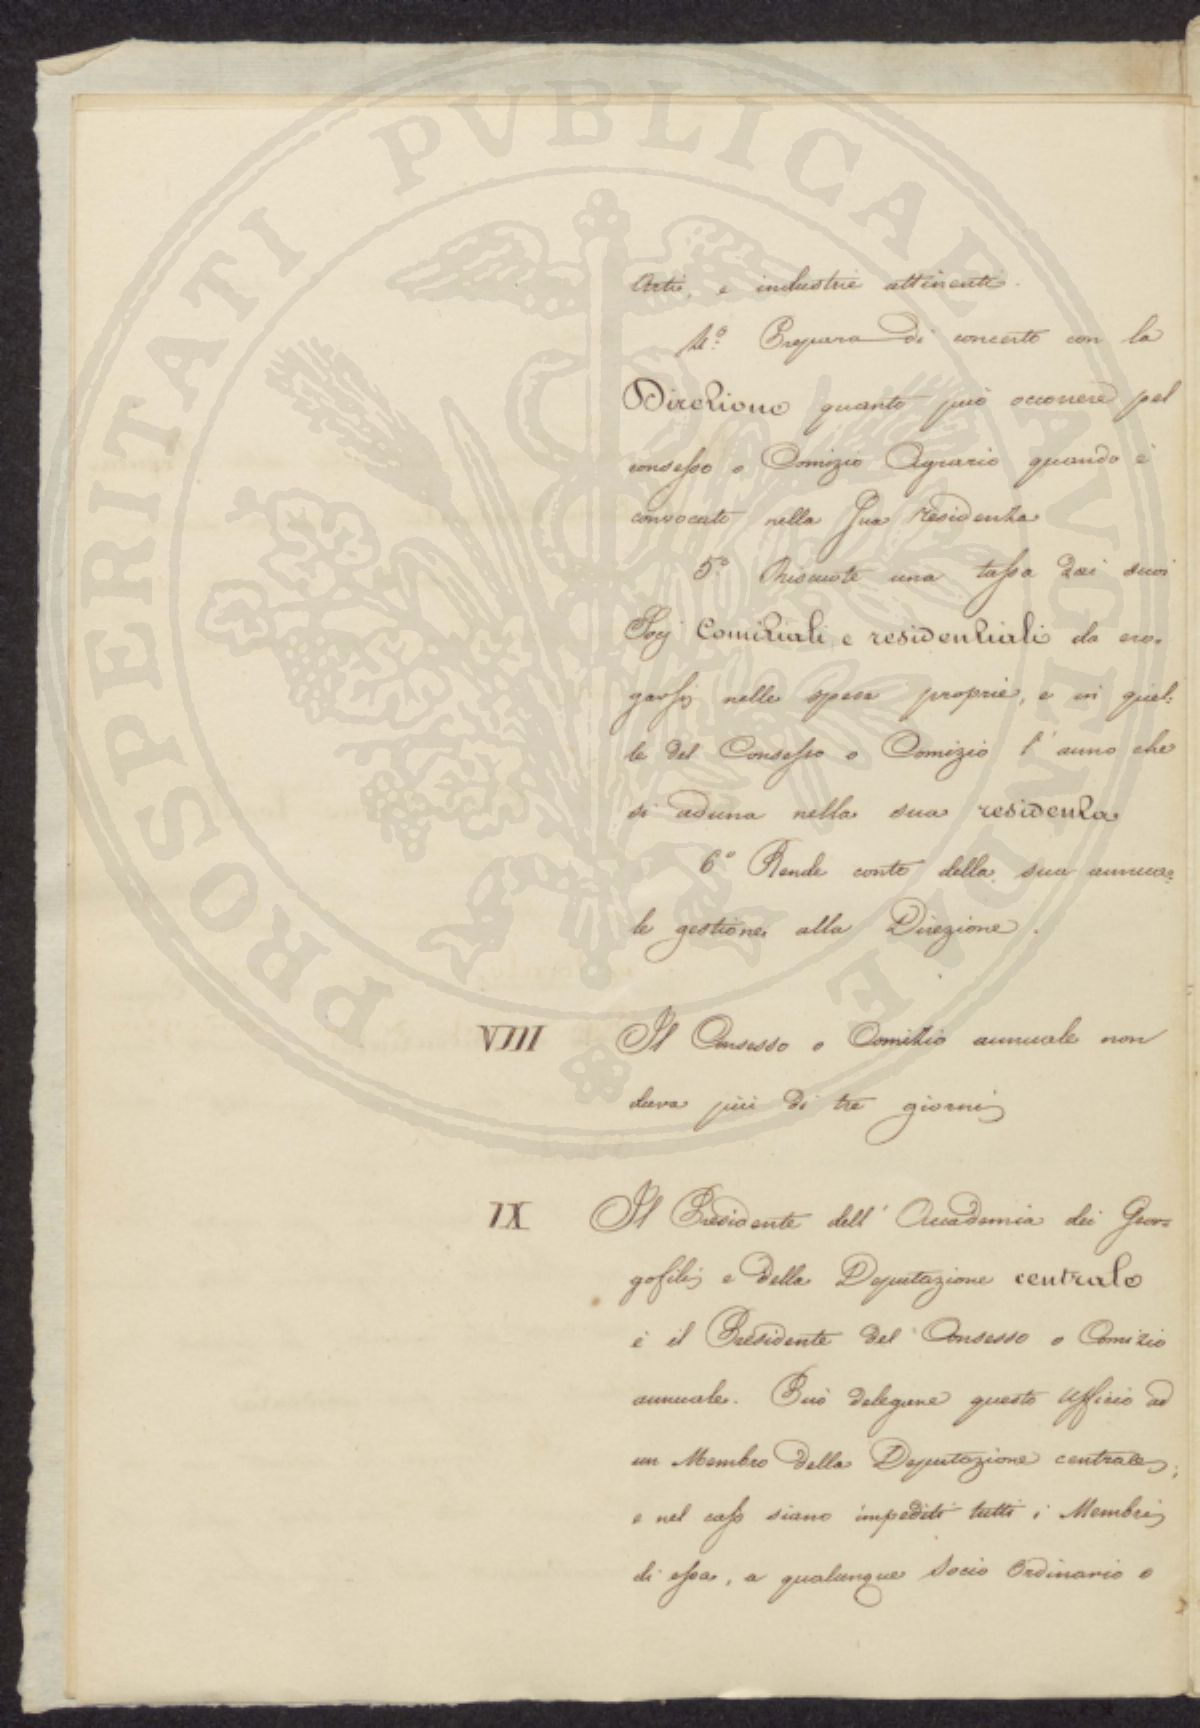 PROSPERITATI PVBLICAE AVGENDAE
Arti, e industrie attinenti.
4.º Prepara di concerto con la
Direzione quanto può occorrere pel
consesso o Comizio Agrario quando è
convocato nella Sua residenza
5.º Riscuote una tassa dai suoi
Socj Comiziali, e residenziali da ero-
garsi nelle spese proprie, e in quel-
le del Consesso o Comizio l'anno che
si aduna nella sua residenza
6º Rende conto della sua annua-
le gestione alla Direzione.
VIII Il Consesso o Comizio annuale non
dura più di tre giorni
IX Il Presidente dell'Accademia dei Geor-
gofili e della Deputazione centrale
è il Presidente del Consesso o Comizio
annuale. Può delegare questo Ufficio ad
un Membro della Deputazione centrale;
e nel caso siano impediti tutti i Membri
di essa, a qualunque Socio Ordinario o